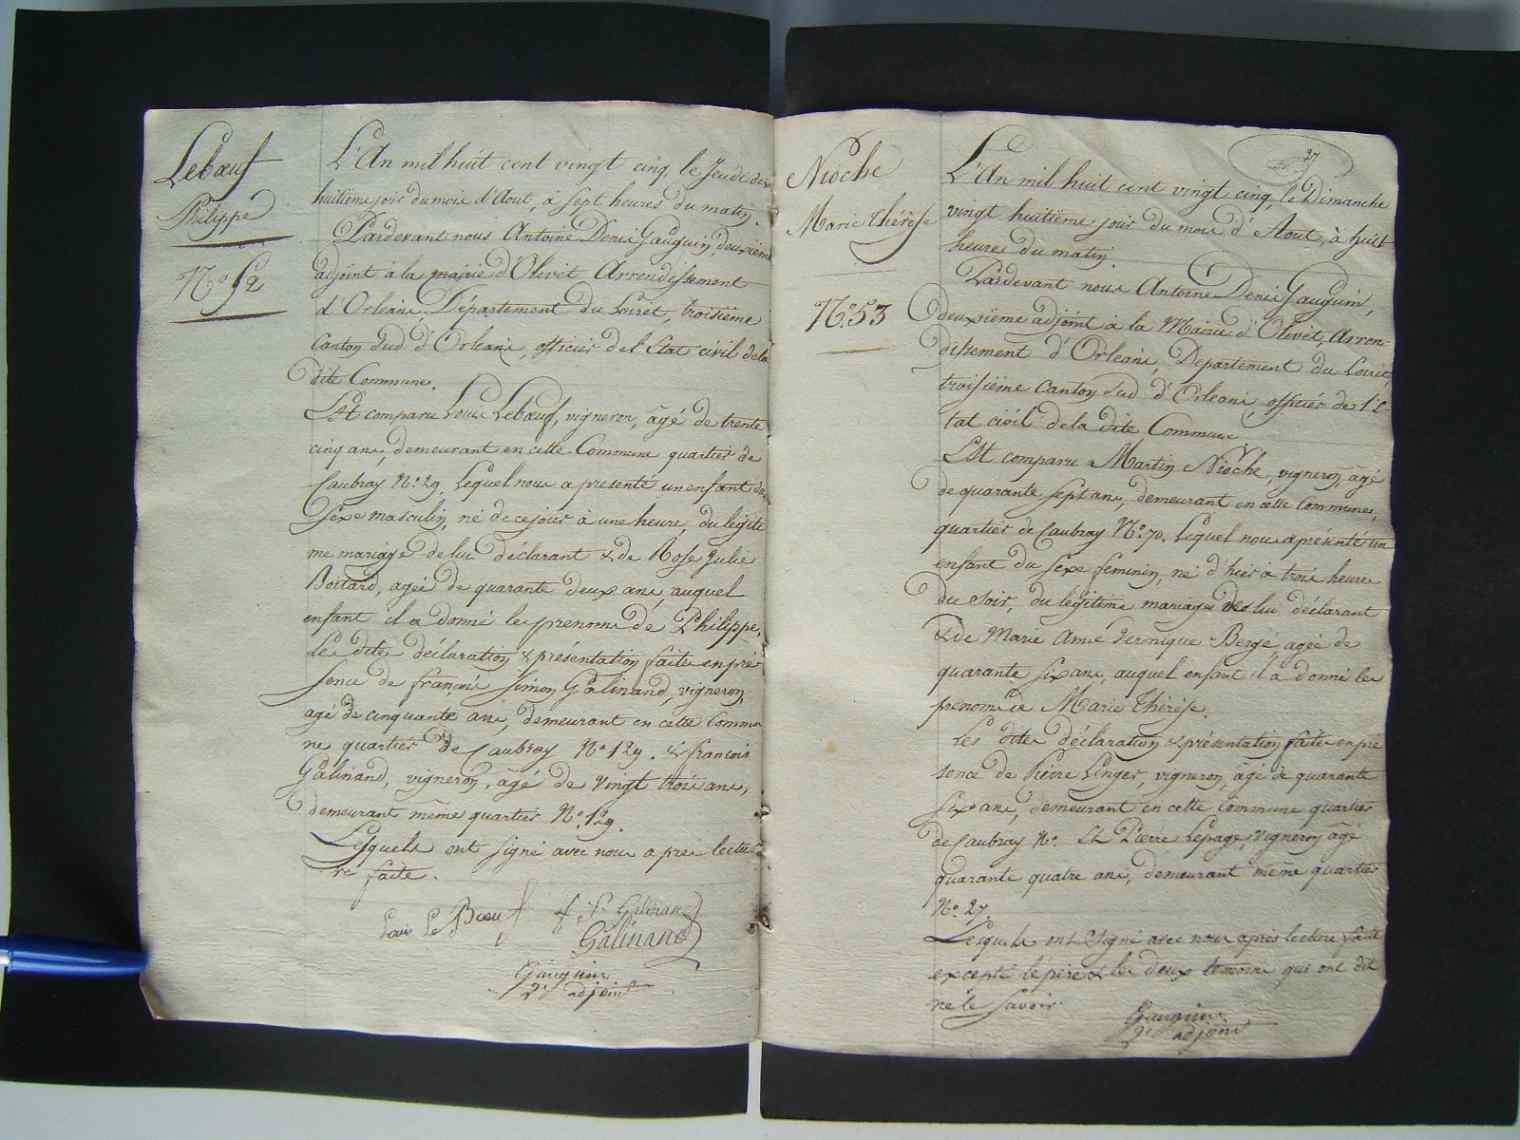 Lebœuf
Philippe
N.º 52
L'An mil huit cent vingt cinq, le Jeudi dix
huitième jour du mois d'Aout, à sept heures du matin.
Pardevant nous Antoine Denis Gauguin, deuxième
adjoint à la mairie d'Olivet Arrondissement
d'Orléans, Département du Loiret, troisième
Canton Sud d'Orléans, officier de l'Etat civil de la
dite Commune.
Est comparu Louis Lebœuf, vigneron, âgé de trente
cinq ans, demeurant en cette Commune quartier de
Caubray N.º 29. Lequel nous a présenté un enfant du
sexe masculin, né de ce jour à une heure, du légiti
me mariage de lui déclarant & de Rose Julie
Boitard, agée de quarante deux ans, auquel
enfant il a donné le prenoms de Philippe.
Les dites déclaration & présentation faites en pré
sence de françois Simon Galinand, vigneron,
agé de cinquante ans, demeurant en cette Commu
ne quartier de Caubray N.º 129. & françois
Galinand, vigneron, âgé de vingt trois ans,
demeurant même quartier N.º 129.
Lesquels ont signé avec nous apres lectu
re faite.
Louis Le Bœuf
Galinand
Gauguin
2e adjoint
27
Nioche
Marie Thérèse
N.º 53
L'An mil huit cent vingt cinq, le Dimanche
vingt huitième jour du mois d'Aout, à huit
heures du matin.
Pardevant nous Antoine Denis Gauguin,
deuxième adjoint à la Mairie d'Olivet, Arron-
dissement d'Orléans, Département du Loiret,
troisième Canton Sud d'Orléans, officier de l'é
tat civil de la dite Commune
Est comparu Martin Nioche, vigneron, âgé
de quarante sept ans, demeurant en cette Commune,
quartier de Caubray N.º 70. Lequel nous a présenté un
enfant du sexe feminin, né d'hier à trois heures
du soir, du légitime mariage de lui déclarant
& de Marie Anne Veronique Bergé, agée de
quarante six ans, auquel enfant il a donné les
prenoms de Marie Thérèse.
Les dites déclaration & présentation faites en pré
sence de Pierre Linger, vigneron, âgé de quarante
six ans, demeurant en cette Commune quartier
de Caubray N.º Et Pierre Lepage, vigneron âgé
quarante quatre ans, demeurant même quartier
N.º 27.
Lesquels ont signé avec nous après lecture faite
excepté le père & les deux temoins qui ont dit
ne le savoir.
Gauguin
2e adjoint